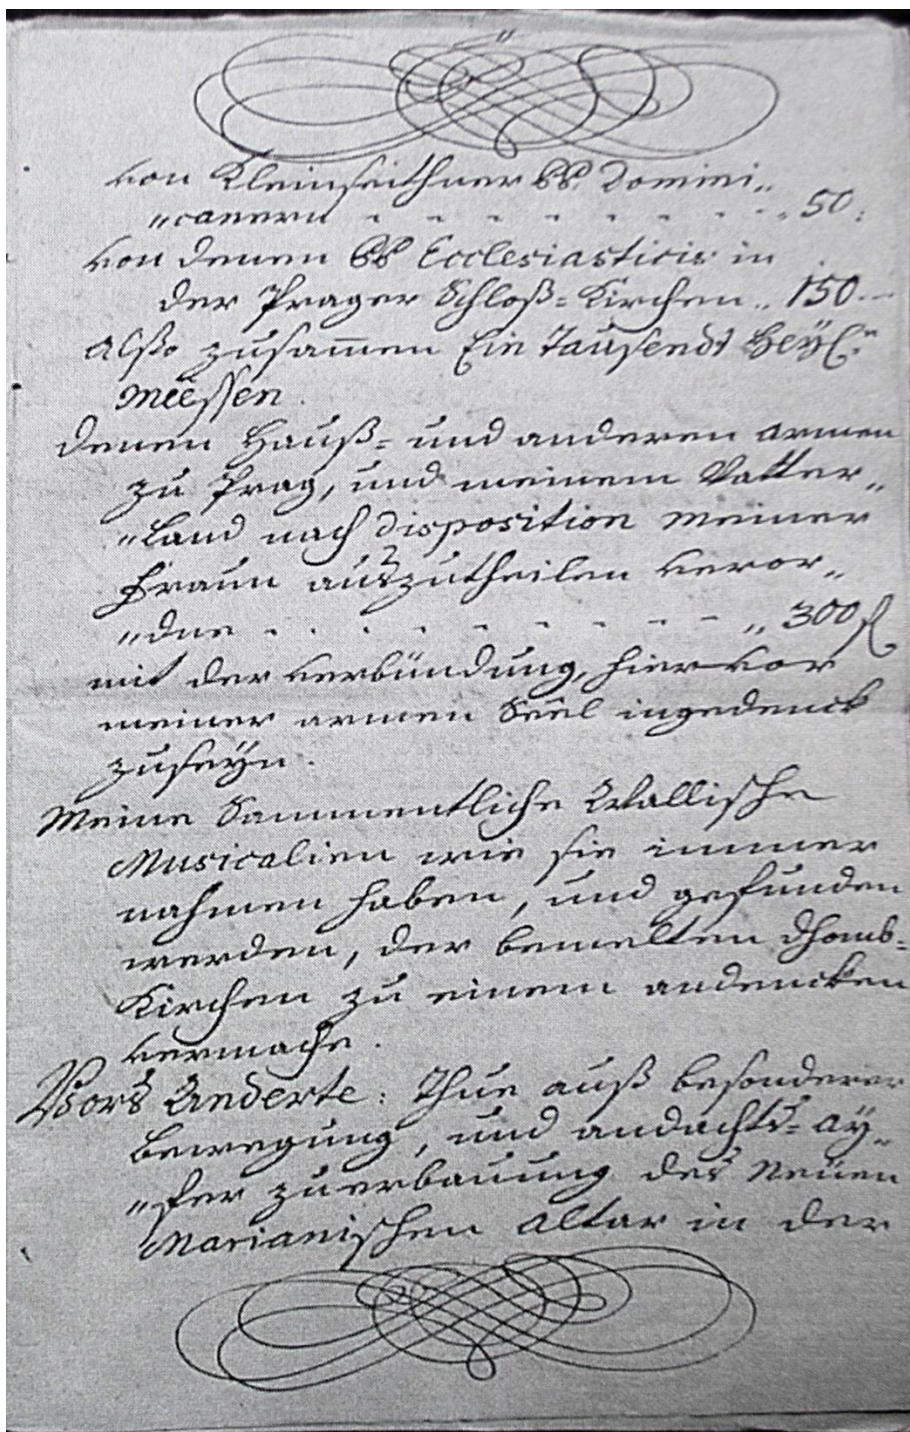 von Kleinseithner PP. Domini„
„canern - - - - - - - - „ 50:
von denen PP Ecclesiasticis in
der Prager Schloß= Kirchen „ 150.—
Alßo zusam̄en Ein Tausendt Heyl:n
Meessen.
denen Hauß= und anderen Armen
zu Prag, und meinem Vatter„
„land nach disposition meiner
Fraun auszutheilen veror„
„dne - - - - - - - - - „ 300 fl
mit der verbündung, hiervor
meiner armen Seel ingedenck
zuseyn.
Meine Sammentliche Wallische
Musicalien wie sie immer
nahmen haben, und gefunden
werden, der bemelten Dhomb=
Kirchen zu einem andencken
vermache.
Vors Anderte: Thue auß besonderer
bewegung, und andachts= Ay„
„fer zuerbauung des Neüen
Marianischen Altar in der